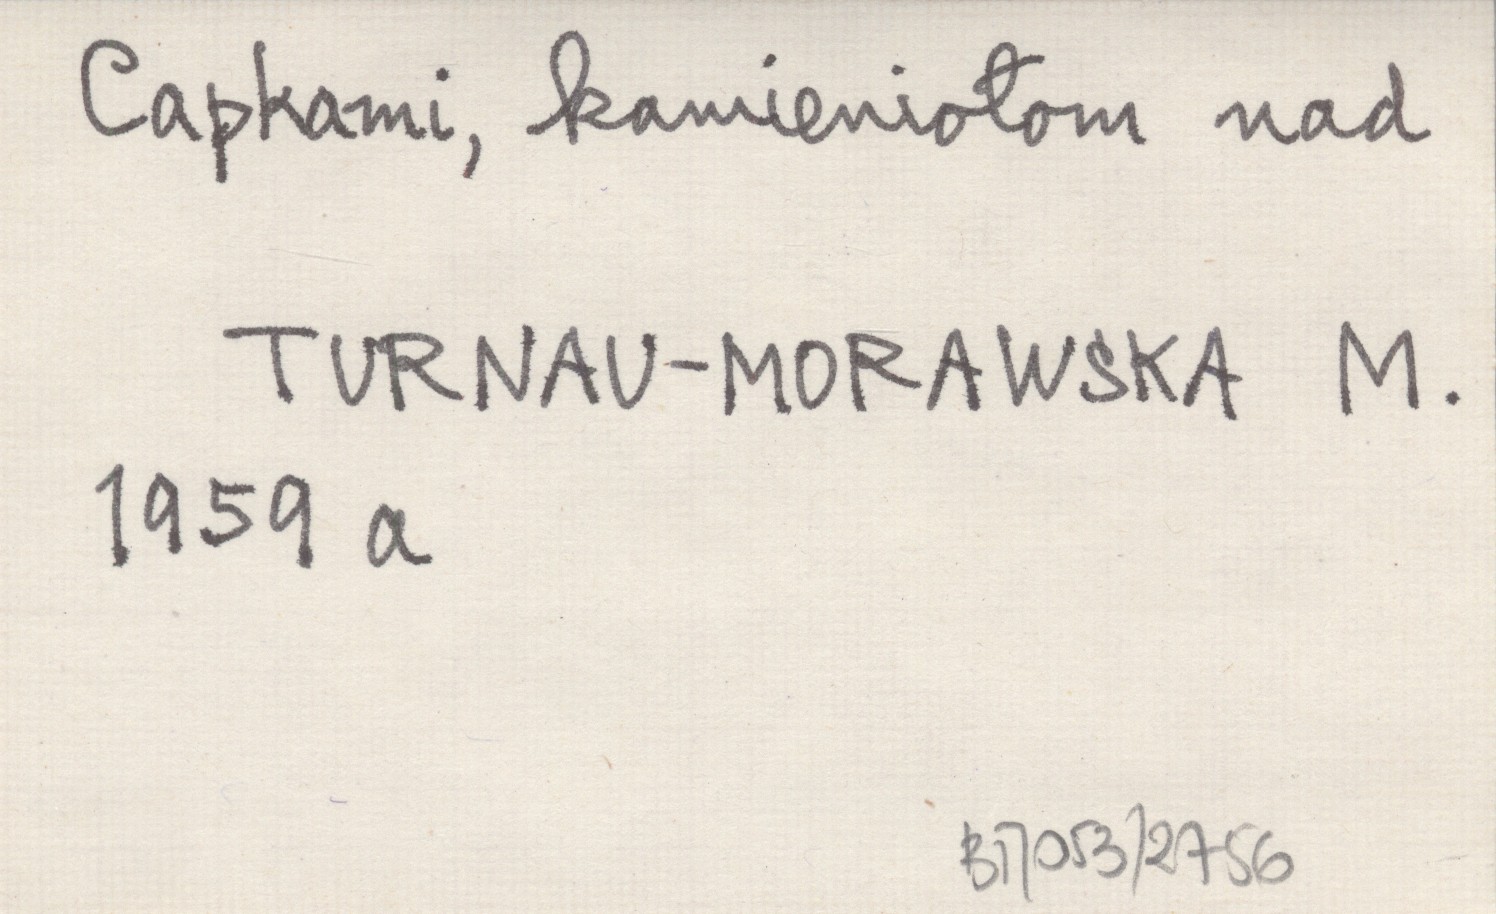 Capkami, kamieniołom nad
TURNAU-MORAWSKA M.
1959 a
BT/053/2756